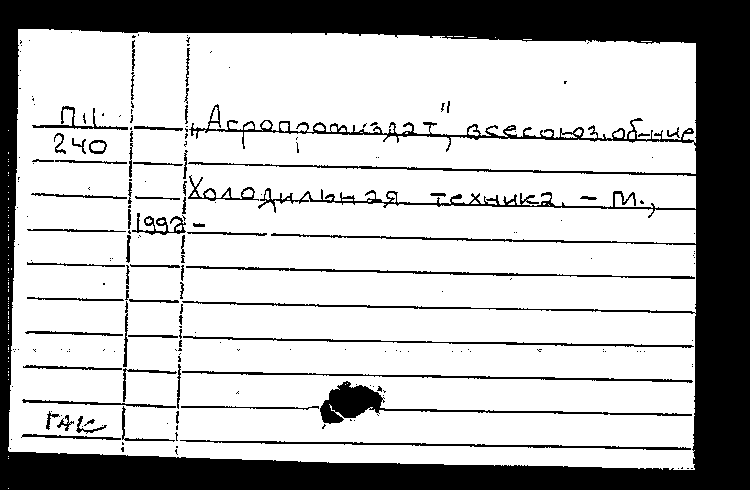 П.1.
240
„Агропромиздат", всесоюз.об-ние
Холодильная техника. - М.,
1992 -
ГАК